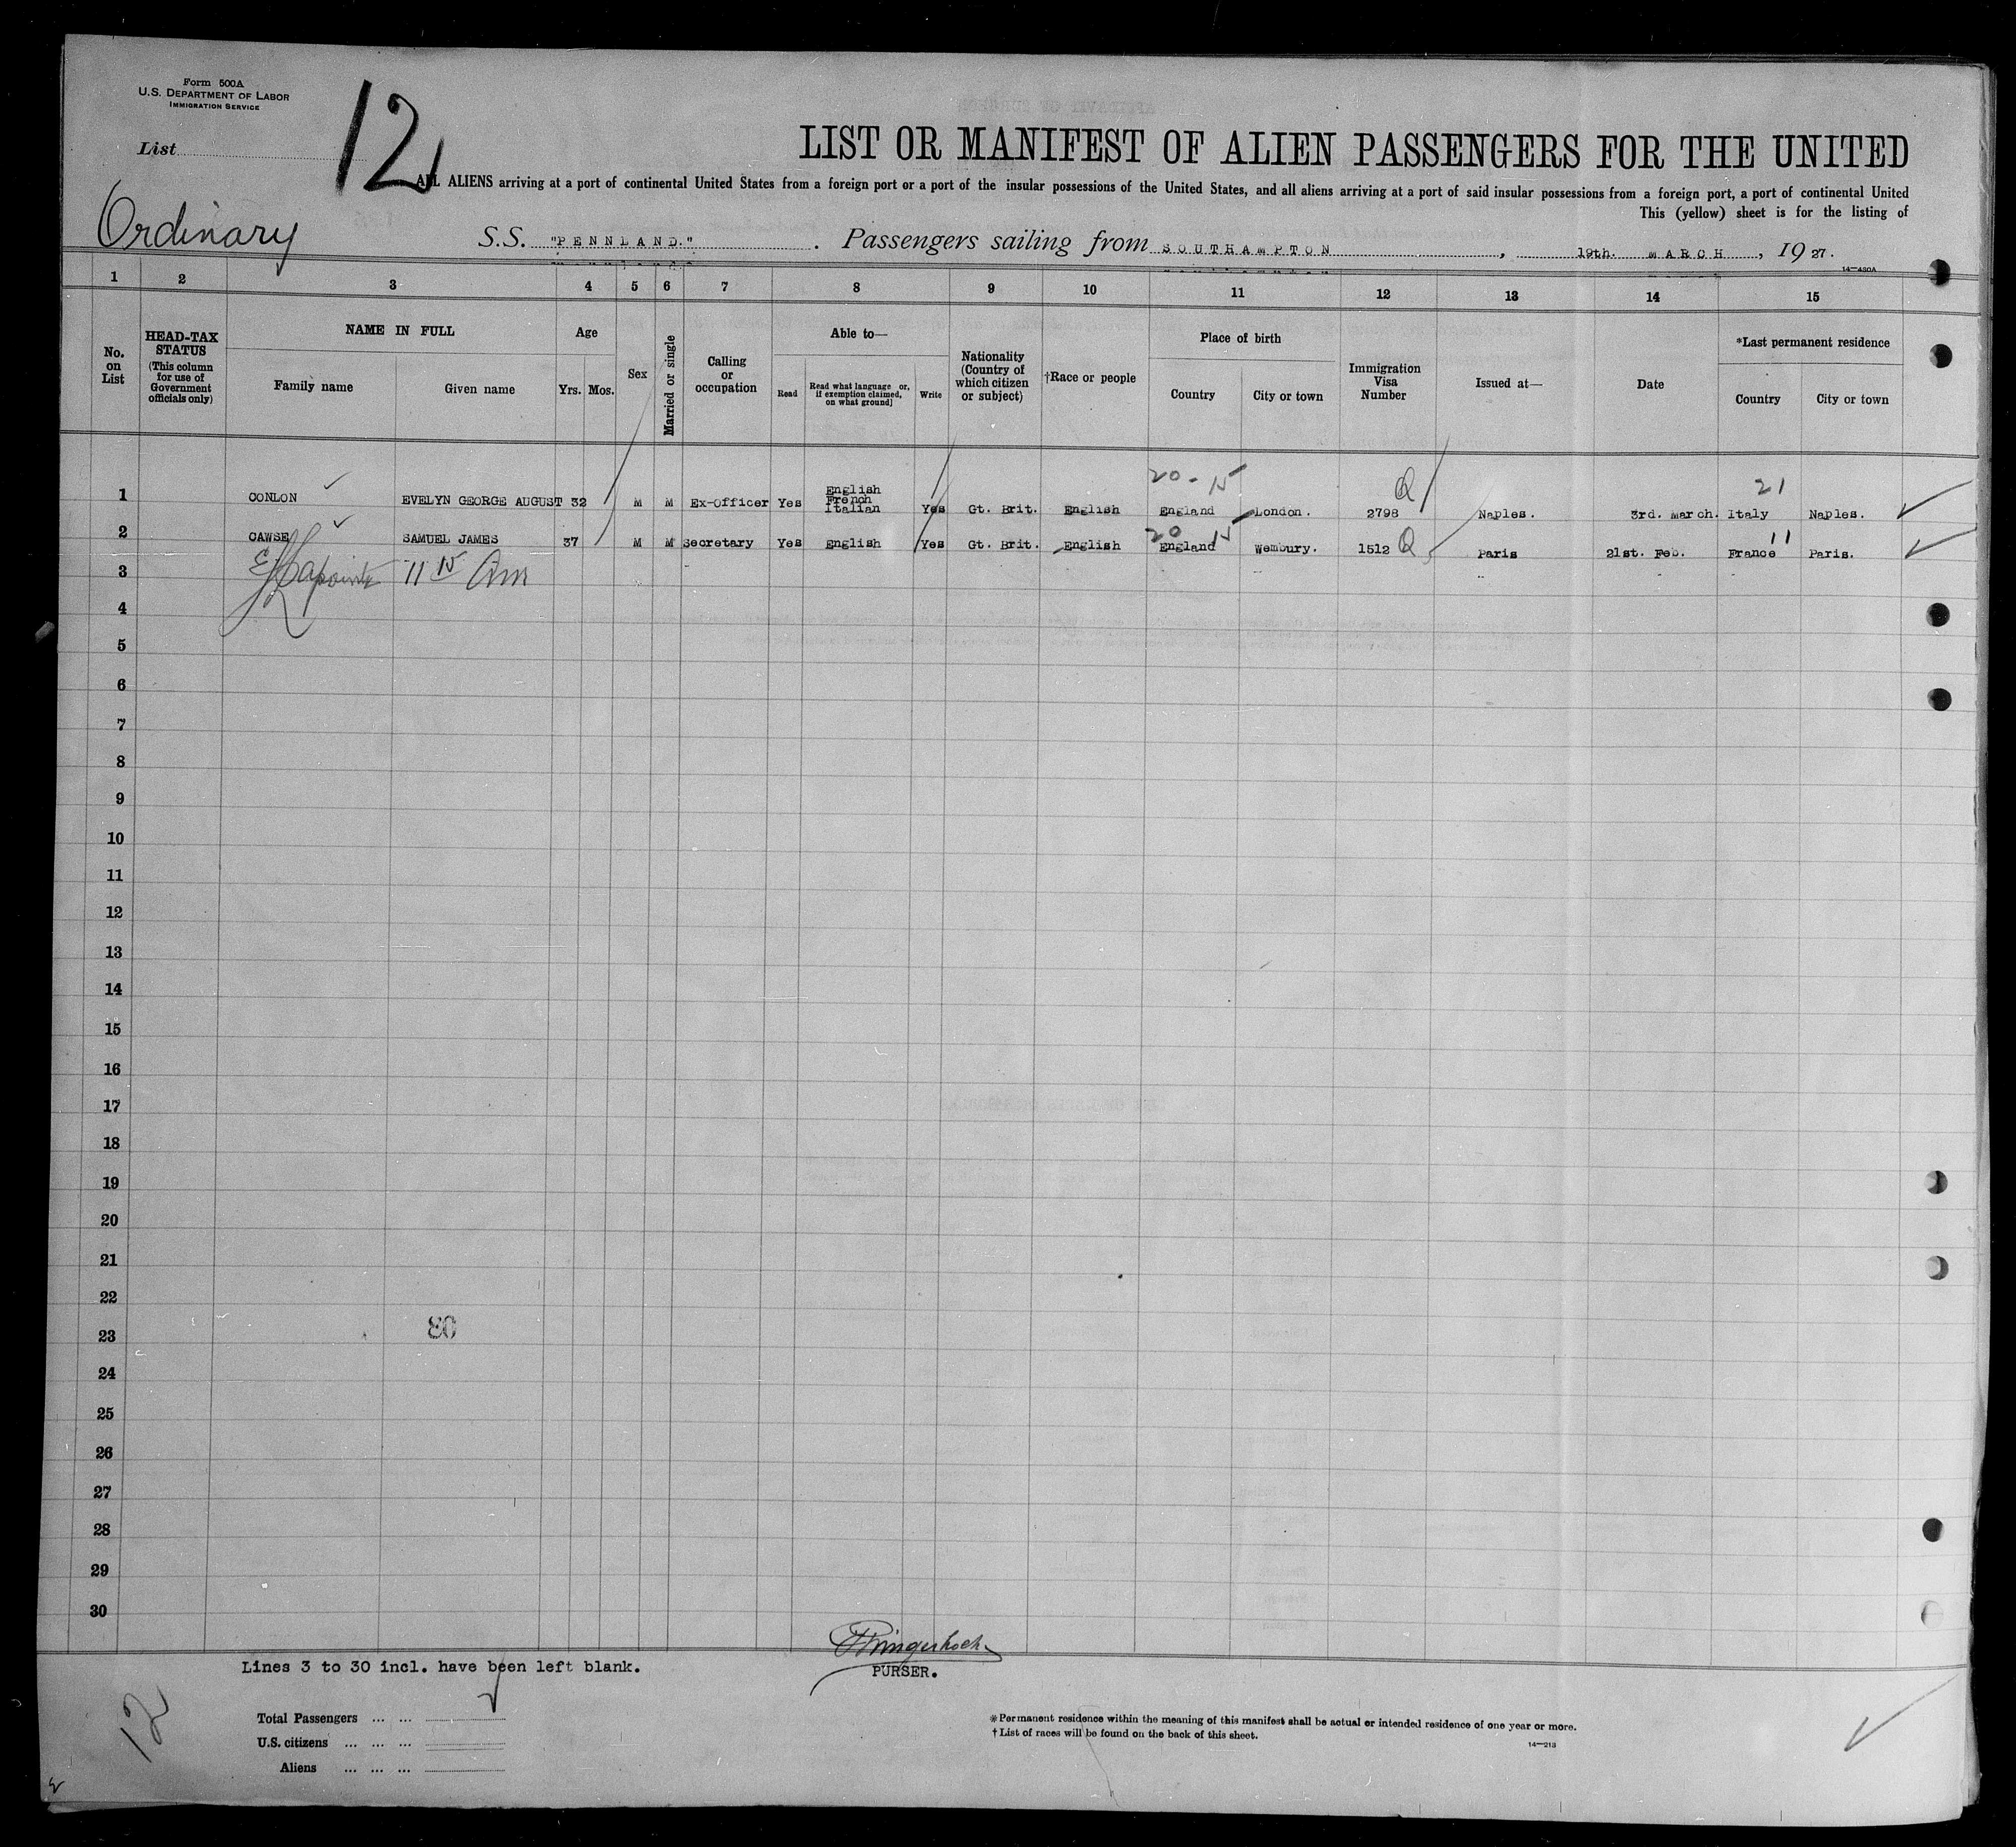 Form 500A
U.S. DEPARTMENT OF LABOR
IMMIGRATION SERVICE
List
12
LIST OR MANIFEST OF ALIEN PASSENGERS FOR THE UNITED
ALL ALIENS arriving at a port of continental United States from a foreign port or a port of the insular possessions of the United States, and all aliens arriving at a port of said insular possessions from a foreign port, a port of continental United
This (yellow) sheet is for the listing of
Ordinary
S.S. "PENNLAND." . Passengers sailing from SOUTHAMPTON , 19th. MARCH , 19 27.
14—480A
1 2 3 4 5 6 7 8 9 10 11 12 13 14 15
No. on List
HEAD-TAX STATUS
(This column for use of Government officials only)
NAME IN FULL
Family name
Given name
Age
Yrs. Mos.
Sex
Married or single
Calling or occupation
Able to—
Read
Read what language or, if exemption claimed, on what ground]
Write
Nationality (Country of which citizen or subject)
†Race or people
Place of birth
Country
City or town
Immigration Visa Number
Issued at—
Date
*Last permanent residence
Country
City or town
20 - 15 Q 21
1 CONLON EVELYN GEORGE AUGUST 32 M M Ex-Officer Yes English French Italian Yes Gt. Brit. English England London. 2798 Naples. 3rd. March. Italy Naples.
20 15 Q 11
2 CAWSE SAMUEL JAMES 37 M M Secretary Yes English Yes Gt. Brit. English England Wembury. 1512 Paris 21st. Feb. France Paris.
3 11 15 Am
4
5
6
7
8
9
10
11
12
13
14
15
16
17
18
19
20
21
22
23
24
25
26
27
28
29
30
Lines 3 to 30 incl. have been left blank.
PURSER.
12
Total Passengers ... ...
U.S. citizens ... ... ...
Aliens ... ... ...
*Permanent residence within the meaning of this manifest shall be actual or intended residence of one year or more.
†List of races will be found on the back of this sheet.
14—213